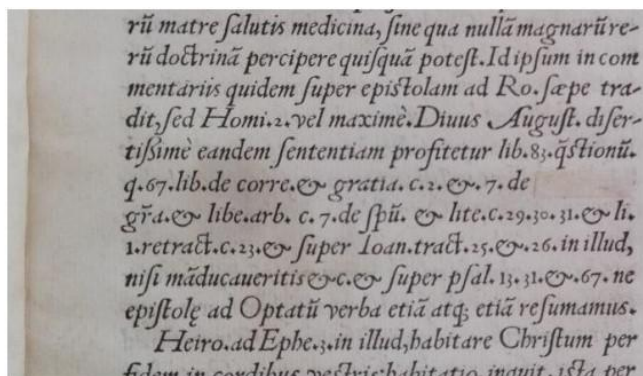 rũ matre ſalutis medicina, ſine qua nullã magnarũ re-
rũ doctrinã percipere quiſquã poteſt. Id ipſum in com
mentariis quidem ſuper epiſtolam ad Ro. ſæpe tra-
dit, ſed Homi. 2. vel maximè. Diuus Auguſt. diſer-
tiſſimè eandem ſententiam profitetur lib. 83. q̃stionũ.
q. 67. lib. de corre. & gratia. c. 2. &. 7. de
gr̃a. & libe. arb. c. 7. de ſpũ. & lite. c. 29. 30. 31. & li.
1. retract. c. 23. & ſuper Ioan. tract. 25. & 26. in illud,
niſi mãducaueritis &c. & ſuper pſal. 13. 31. &. 67. ne
epiſtolę ad Optatũ verba etiã atq; etiã reſumamus.
Heiro. ad Ephe. 3. in illud, habitare Chriſtum per
fidem in cordibus veſtris: habitatio, inquit, iſta per